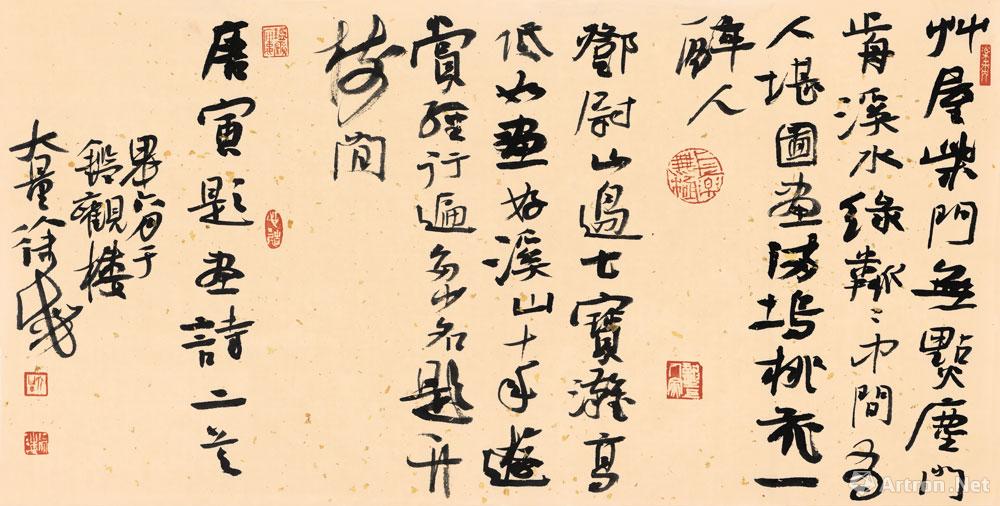 艸屋柴門無點塵門
歬溪水綠粼〻中間有
人堪圖畫満塢桃花一
醉人
鄧尉山邊七寶灘高
低如畫好溪山十年遊
賞經行遍多少名題竹
樹間
唐寅題畫詩二首
六月于
觀樓
大量徐
長樂無極
Artron.Net